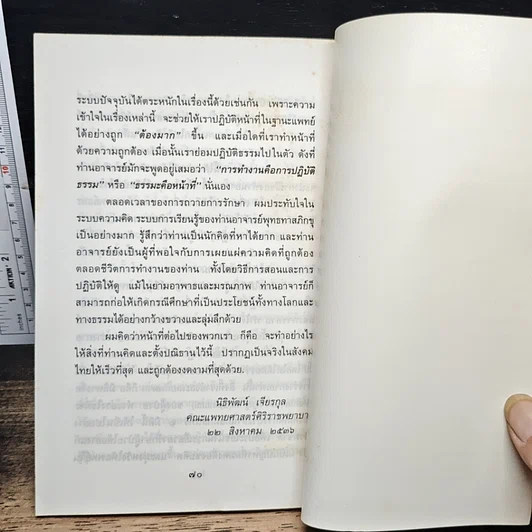 ระบบปัจจุบันได้ตระหนักในเรื่องนี้ด้วยเช่นกัน เพราะความ
เข้าใจในเรื่องเหล่านี้ จะช่วยให้เราปฏิบัติหน้าที่ในฐานะแพทย์
ได้อย่างถูก "ต้องมาก" ขึ้น และเมื่อใดที่เราทำหน้าที่
ด้วยความถูกต้อง เมื่อนั้นเราย่อมปฏิบัติธรรมไปในตัว ดังที่
ท่านอาจารย์มักจะพูดอยู่เสมอว่า "การทำงานคือการปฏิบัติ
ธรรม" หรือ "ธรรมะคือหน้าที่" นั่นเอง
ตลอดเวลาของการถวายการรักษา ผมประทับใจใน
ระบบความคิด ระบบการเรียนรู้ของท่านอาจารย์พุทธทาสภิกขุ
เป็นอย่างมาก รู้สึกว่าท่านเป็นนักคิดที่หาได้ยาก และท่าน
อาจารย์ยังเป็นผู้ที่พอใจกับการเผยแผ่ความคิดที่ถูกต้อง
ตลอดชีวิตการทำงานของท่าน ทั้งโดยวิธีการสอนและการ
ปฏิบัติให้ดู แม้ในยามอาพาธและมรณภาพ ท่านอาจารย์ก็
สามารถก่อให้เกิดกรณีศึกษาที่เป็นประโยชน์ทั้งทางโลกและ
ทางธรรมได้อย่างกว้างขวางและลุ่มลึกด้วย
ผมคิดว่าหน้าที่ต่อไปของพวกเรา ก็คือ จะทำอย่างไร
ให้สิ่งที่ท่านคิดและตั้งปณิธานไว้นี้ ปรากฏเป็นจริงในสังคม
ไทยให้เร็วที่สุด และถูกต้องงดงามที่สุดด้วย.
นิธิพัฒน์ เจียรกุล
คณะแพทยศาสตร์ศิริราชพยาบา
๒๒ สิงหาคม ๒๕๓๖
๗๐